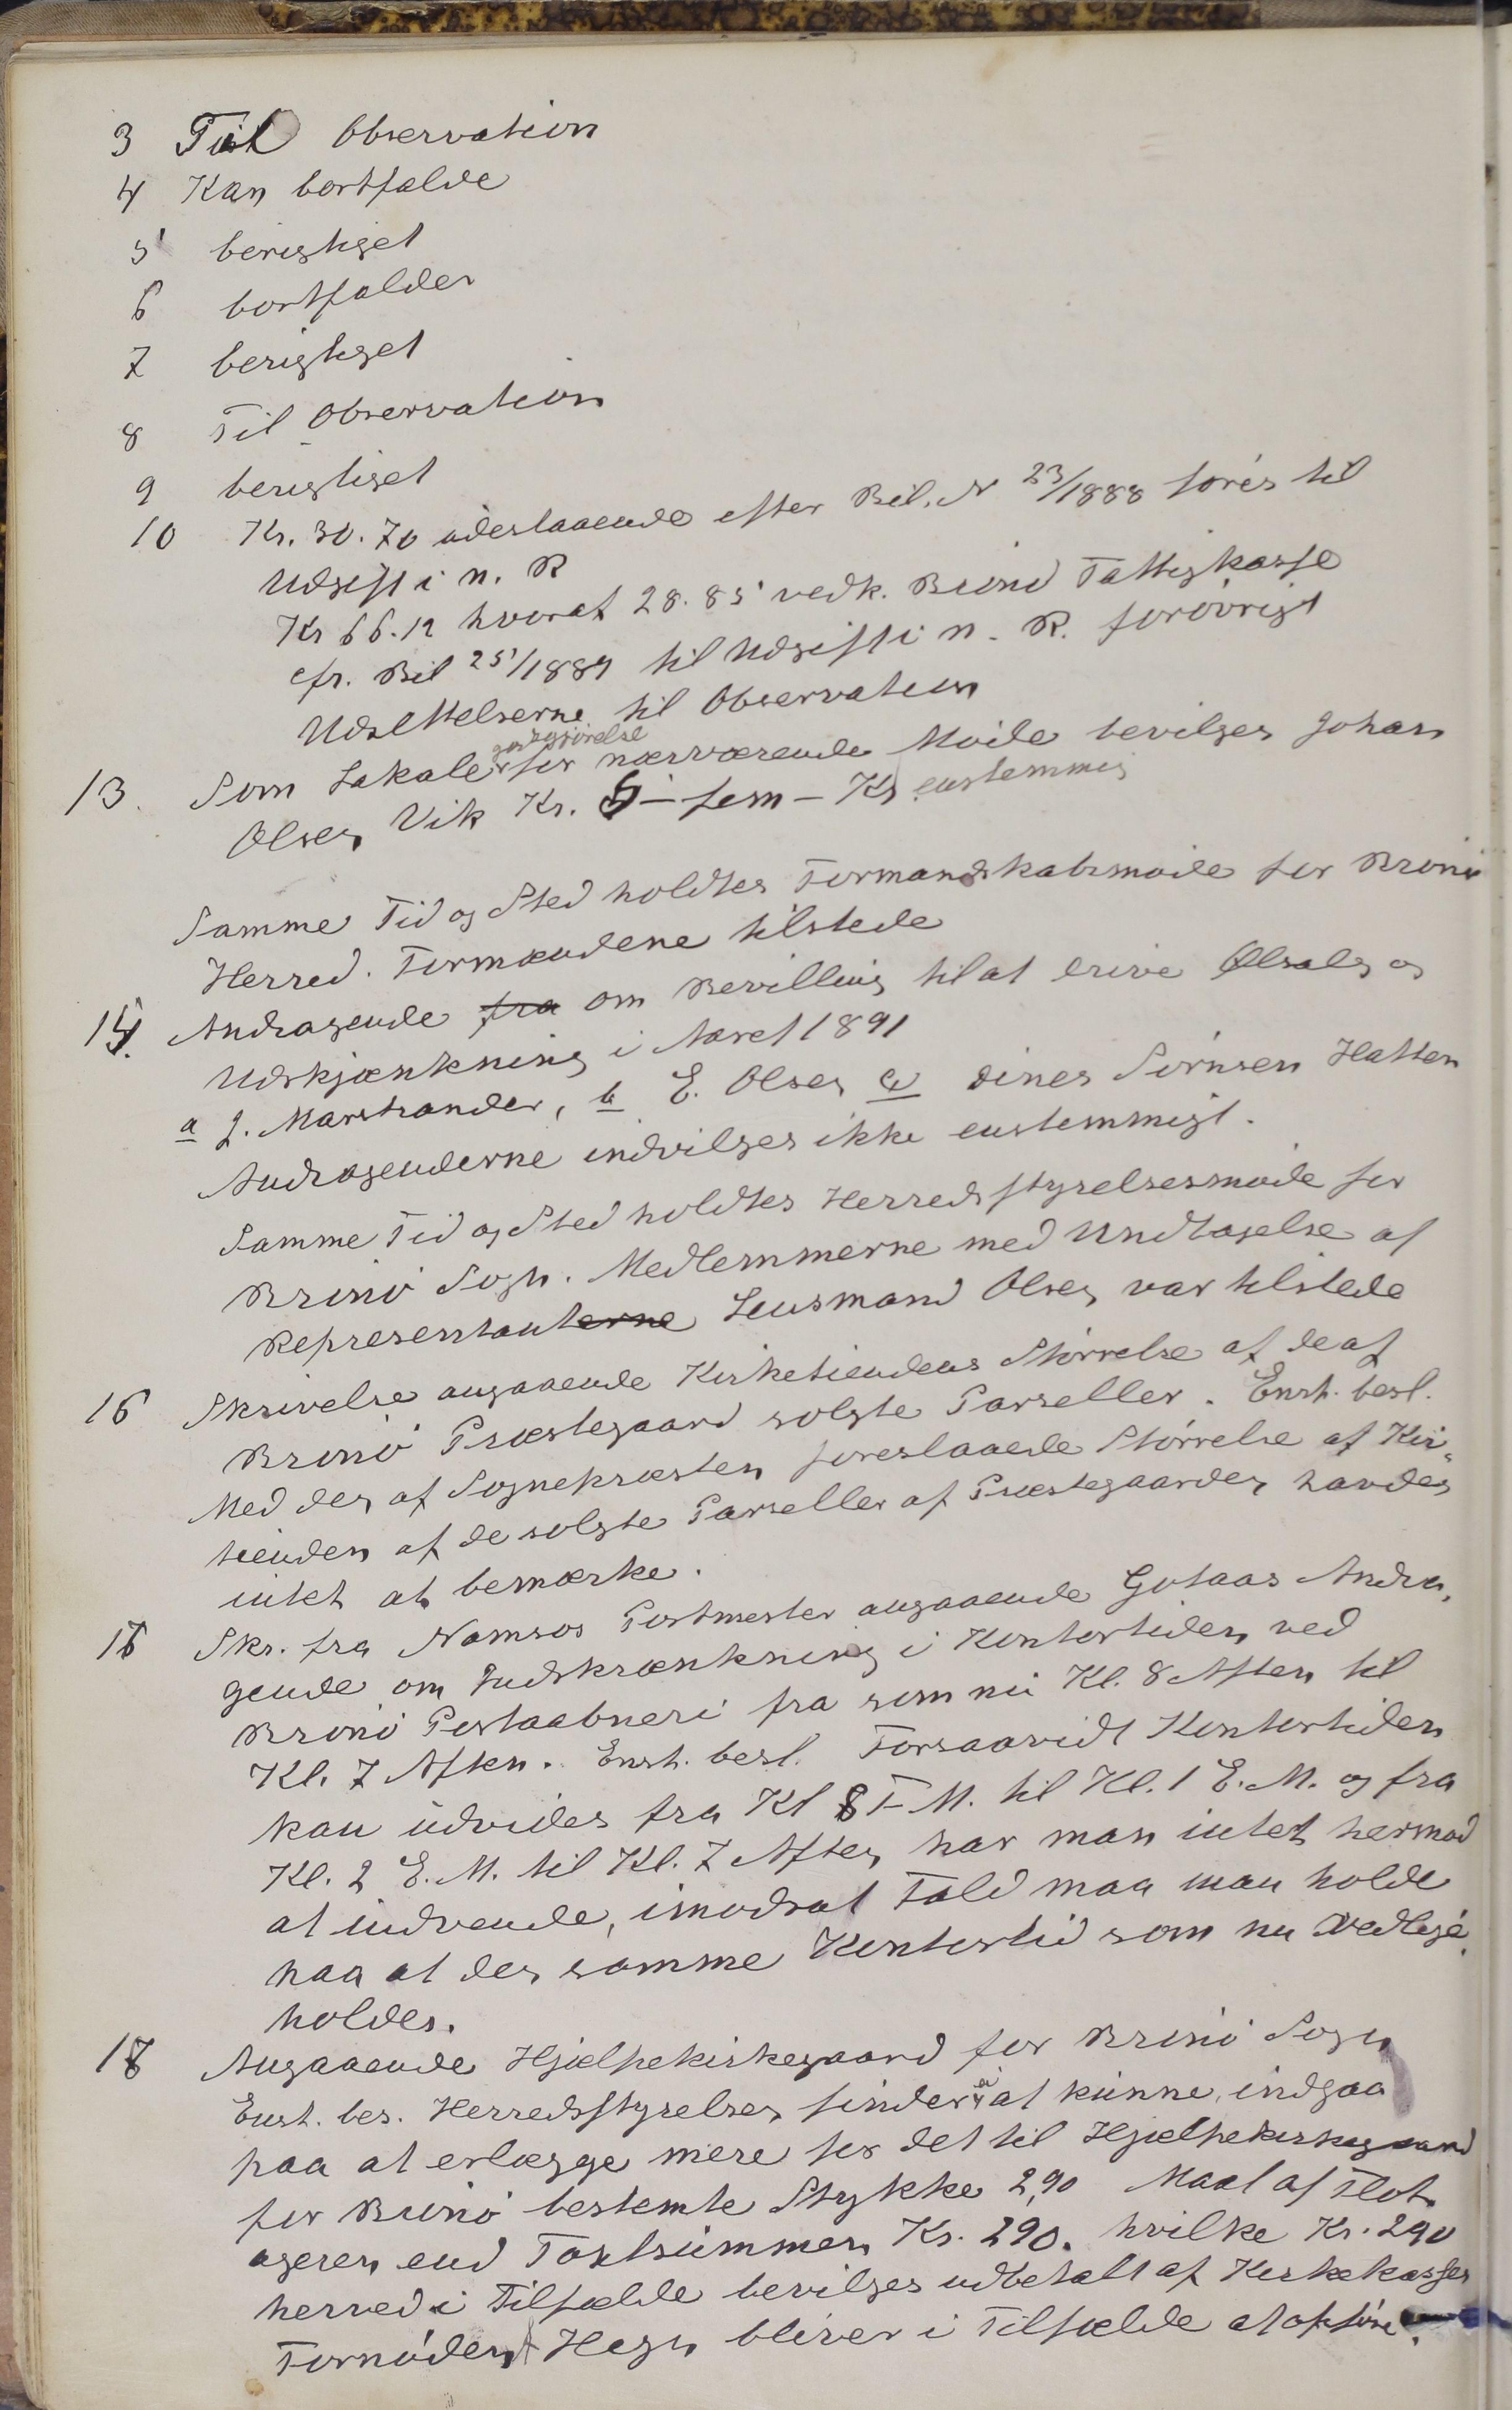 3 Til Observation
4 Kan bortfalde
5 berigtiget
6 bortfalder
7 berigtiget
8 Til Observation
9 berigtiget
10 Kr. 30.70 udestaaende efter Bil. N 23/1888 föres til
Udgift i n. R
Kr 66.12 hvoraf 28.85 vedk. Brönö Fattigkasse
cfr. Bil 25/1889 til Udgift i n. R. forövrigt
Udsettelserne til Observation
13. Som Lokale godtgjörelse for nærværende Möde bevilges Johan
Olsen Vik Kr. 5 - fem - Kr enstemmig
Samme Tid og Sted holdtes Formandskabsmöde for Brönö
Herred. Formændene tilstede
14. Andragende fra om Bevilling til at drive Ölsalg og
Udskjænkning i Aaret 1891
a J. Marstrander, b E. Olsen c Dines Sörnsen Hatten
Andragenderne indvilges ikke enstemmigt.
Samme Tid og Sted holdtes Herredsstyrelsesmöde for
Brönö Sogn. Medlemmerne med Undtagelse af
Representanterne Lensmand Olsen var tilstede
16 Skrivelse angaaende Kirketiendens Störrelse af de af
Brönö Præstegaard solgte Parseller. Enst. besl.
Med den af Sognepræsten foreslaaede Störrelse af Kir-
tienden af de solgte Parseller af Præstegaarden havdes
intet at bemærke.
Skr. fra Namsos Postmester angaaende Gotaas Andra-
gende om Indskrænkning i Kontortiden ved
Brönö Postaabneri fra som nu Kl. 8 Aften til
Kl. 7 Aften. Enst. besl. Forsaavidt Kontortiden
kan udvides fra Kl 8 F.M. til Kl. 1 E.M. og fra
Kl. 2 E.M. til Kl. 7 Aften har man intet hermod
at indvende, imodsat Fald maa man holde
paa at den samme Kontortid som nu vedlige-
holdes.
18 Angaaende Hjælpekirkegaard for Brönö Sogn
Enst. bes. Herredsstyrelsen finder ei at kunne indgaa
paa at erlægge mere for det til Hjælpekirkegaard
for Brönö bestemte Stykke 2,90 Maal af
ageren end Taxtsummen Kr. 290. hvilke Kr. 290
herved i Tilfælde bevilges udbetalt af Kirkekassen
Fornöden Hegn bliver i Tilfælde at opföre.